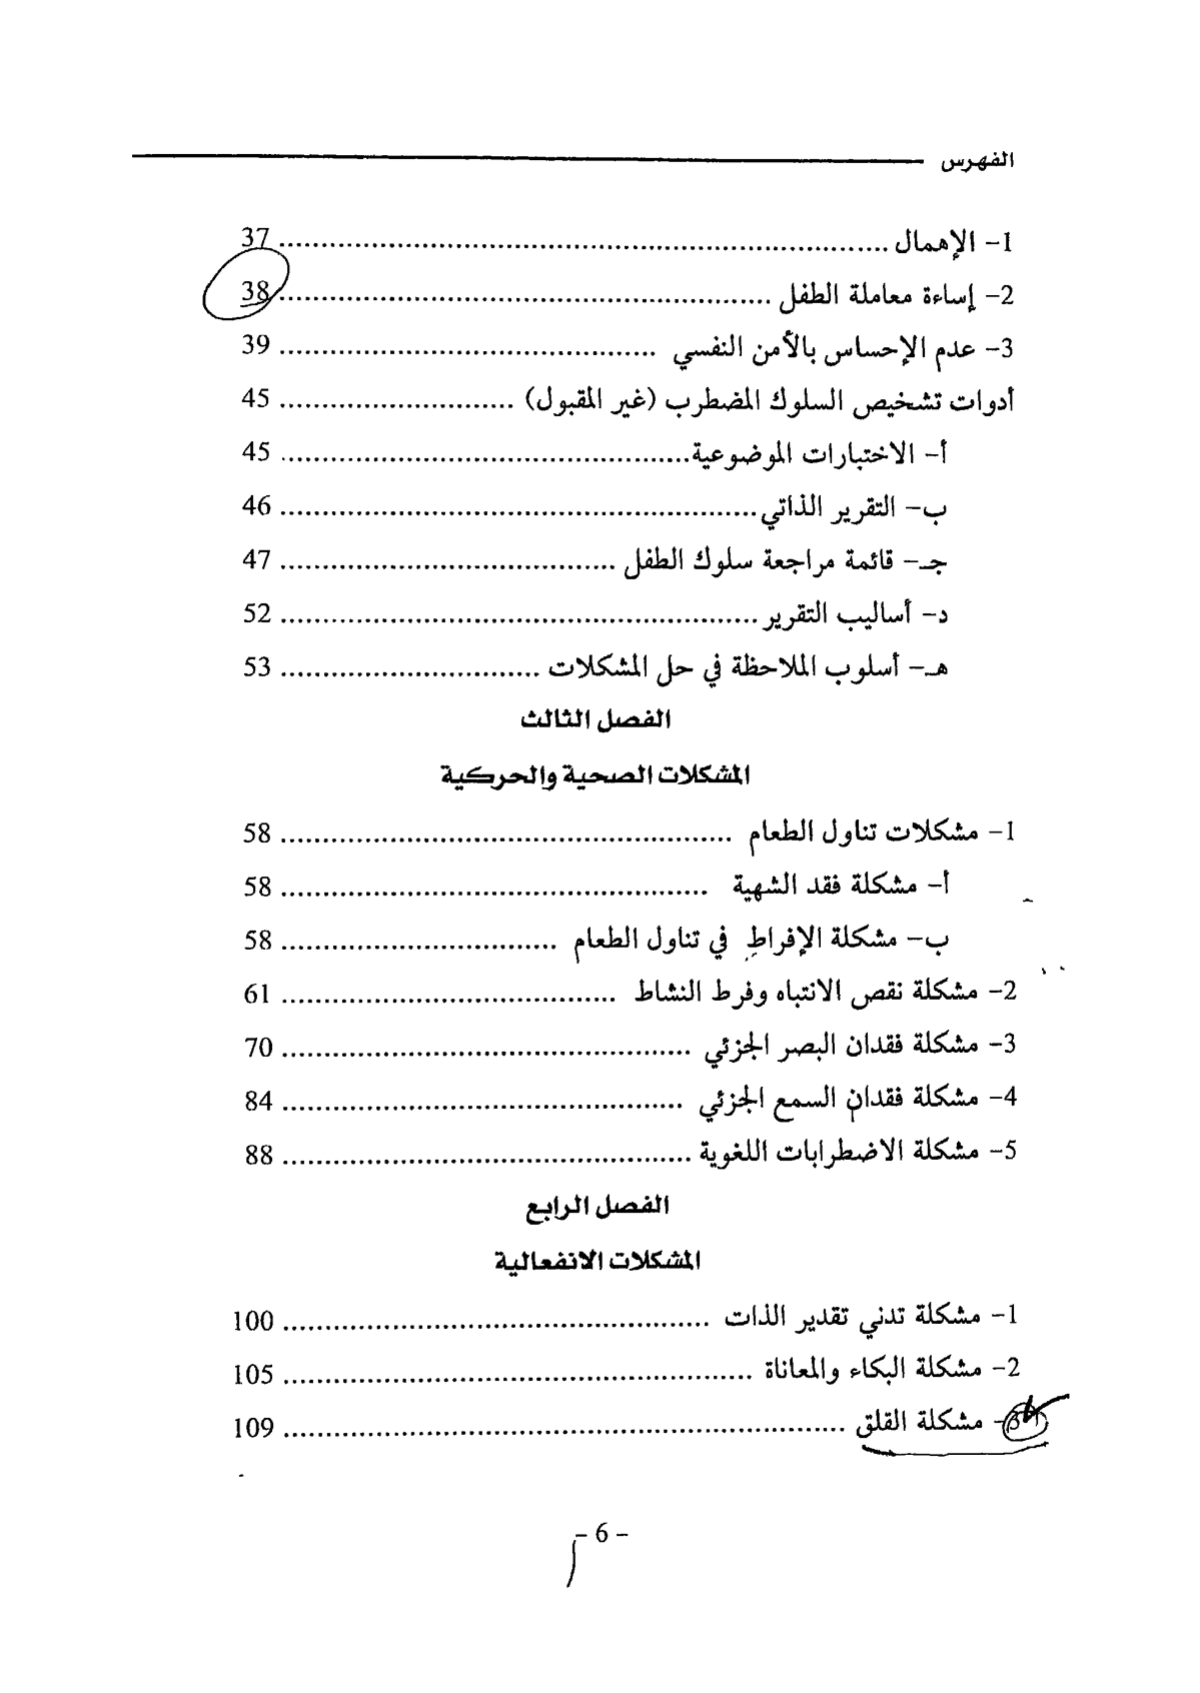 الفهرس
1- الإهمال ........................................................................ 37
2- إساءة معاملة الطفل .......................................................... 38
3- عدم الإحساس بالأمن النفسي ............................................. 39
أدوات تشخيص السلوك المضطرب (غير المقبول) ............................ 45
أ- الاختبارات الموضوعية ................................................. 45
ب- التقرير الذاتي ......................................................... 46
جـ- قائمة مراجعة سلوك الطفل ........................................ 47
د- أساليب التقرير ......................................................... 52
هـ- أسلوب الملاحظة في حل المشكلات ............................... 53
الفصل الثالث
المشكلات الصحية والحركية
1- مشكلات تناول الطعام ...................................................... 58
أ- مشكلة فقد الشهية ................................................... 58
ب- مشكلة الإفراط في تناول الطعام ................................. 58
2- مشكلة نقص الانتباه وفرط النشاط ........................................ 61
3- مشكلة فقدان البصر الجزئي ................................................. 70
4- مشكلة فقدان السمع الجزئي ................................................ 84
5- مشكلة الاضطرابات اللغوية ................................................. 88
الفصل الرابع
المشكلات الانفعالية
1- مشكلة تدني تقدير الذات ................................................... 100
2- مشكلة البكاء والمعاناة ........................................................ 105
3- مشكلة القلق ................................................................... 109
- 6 -